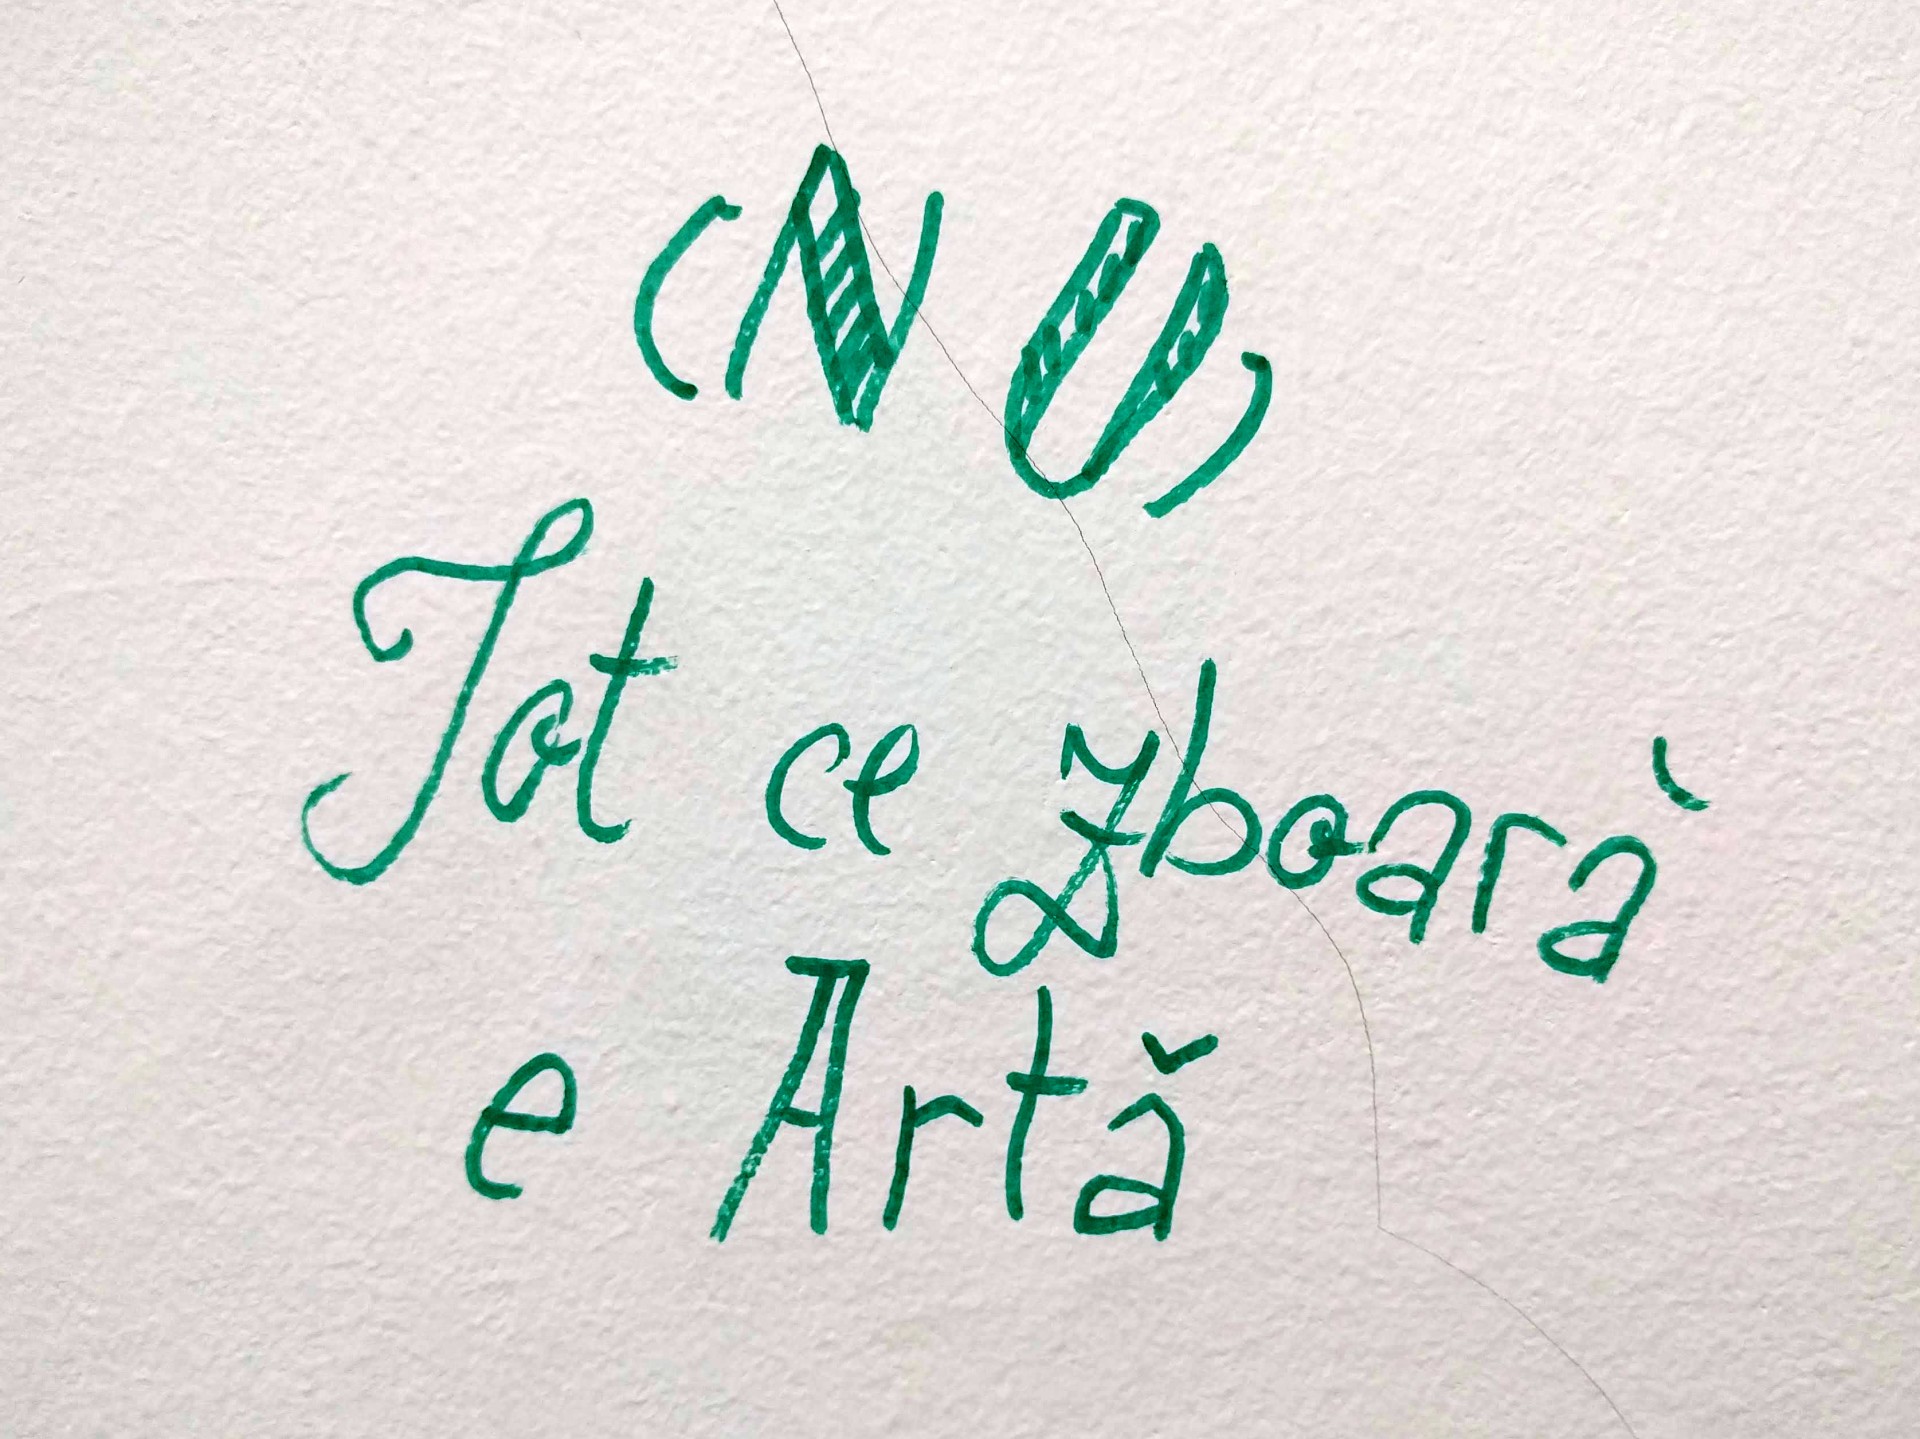 (NU)
Tot ce zboară
e Artă